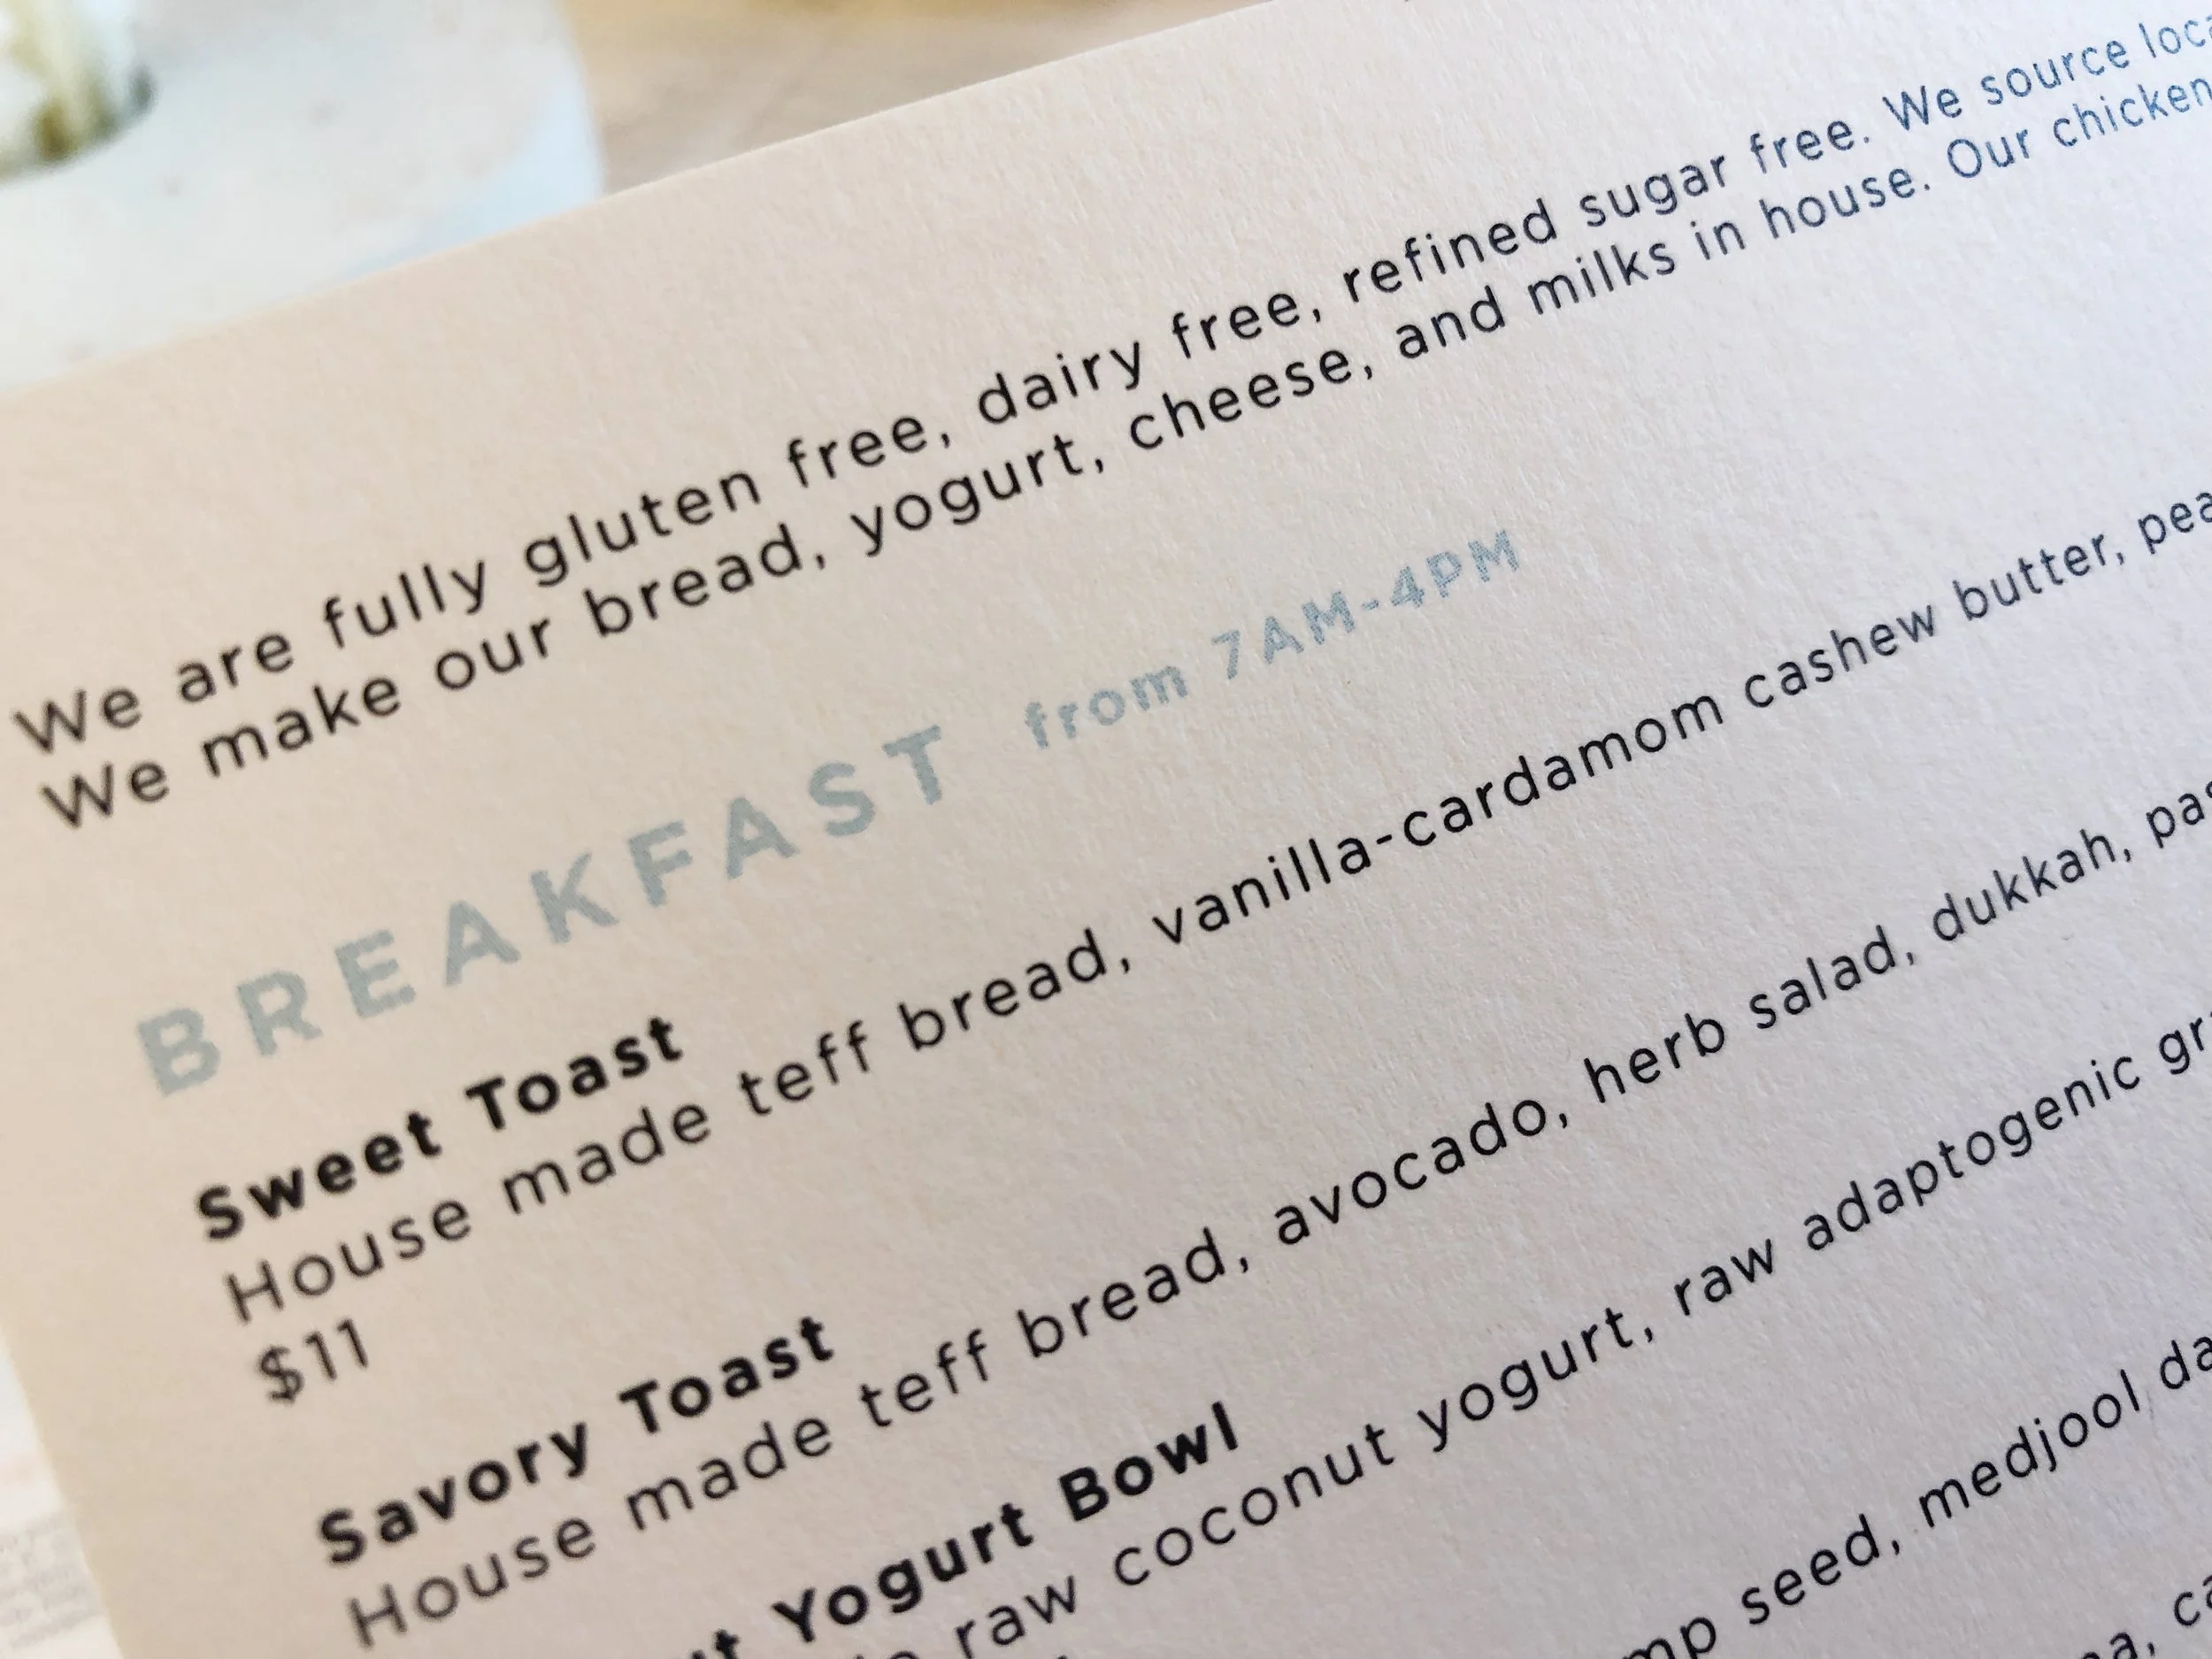 We are fully gluten free, dairy free, refined sugar free. We source
We make our bread, yogurt, cheese, and milks in house. Our chicken
BREAKFAST from 7AM-4PM
Sweet Toast
House made teff bread, vanilla-cardamom cashew butter,
$11
Savory Toast
House made teff bread, avocado, herb salad, dukkah,
Yogurt Bowl
raw coconut yogurt, raw adaptogenic
seed, medjool